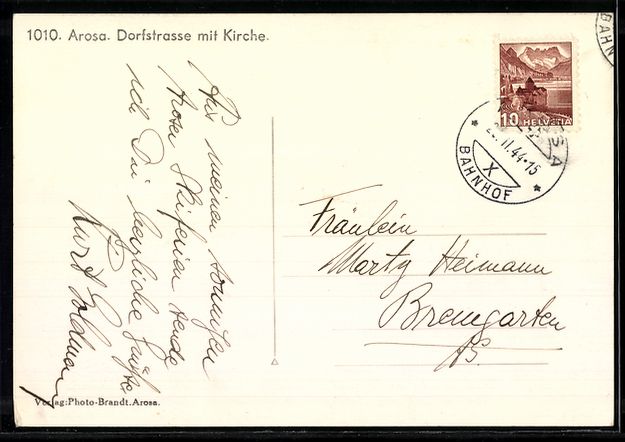 1010. Arosa. Dorfstrasse mit Kirche.
Aus meinen sonnigen
Aroser Skiferien sende
ich Dir herzliche Grüsse
Kurt Goldman
10 HELVETIA
BAHNHOF
X
II.44-15
BAHN
Fräulein
Marty Heimann
Bremgarten
Verlag: Photo-Brandt. Arosa.